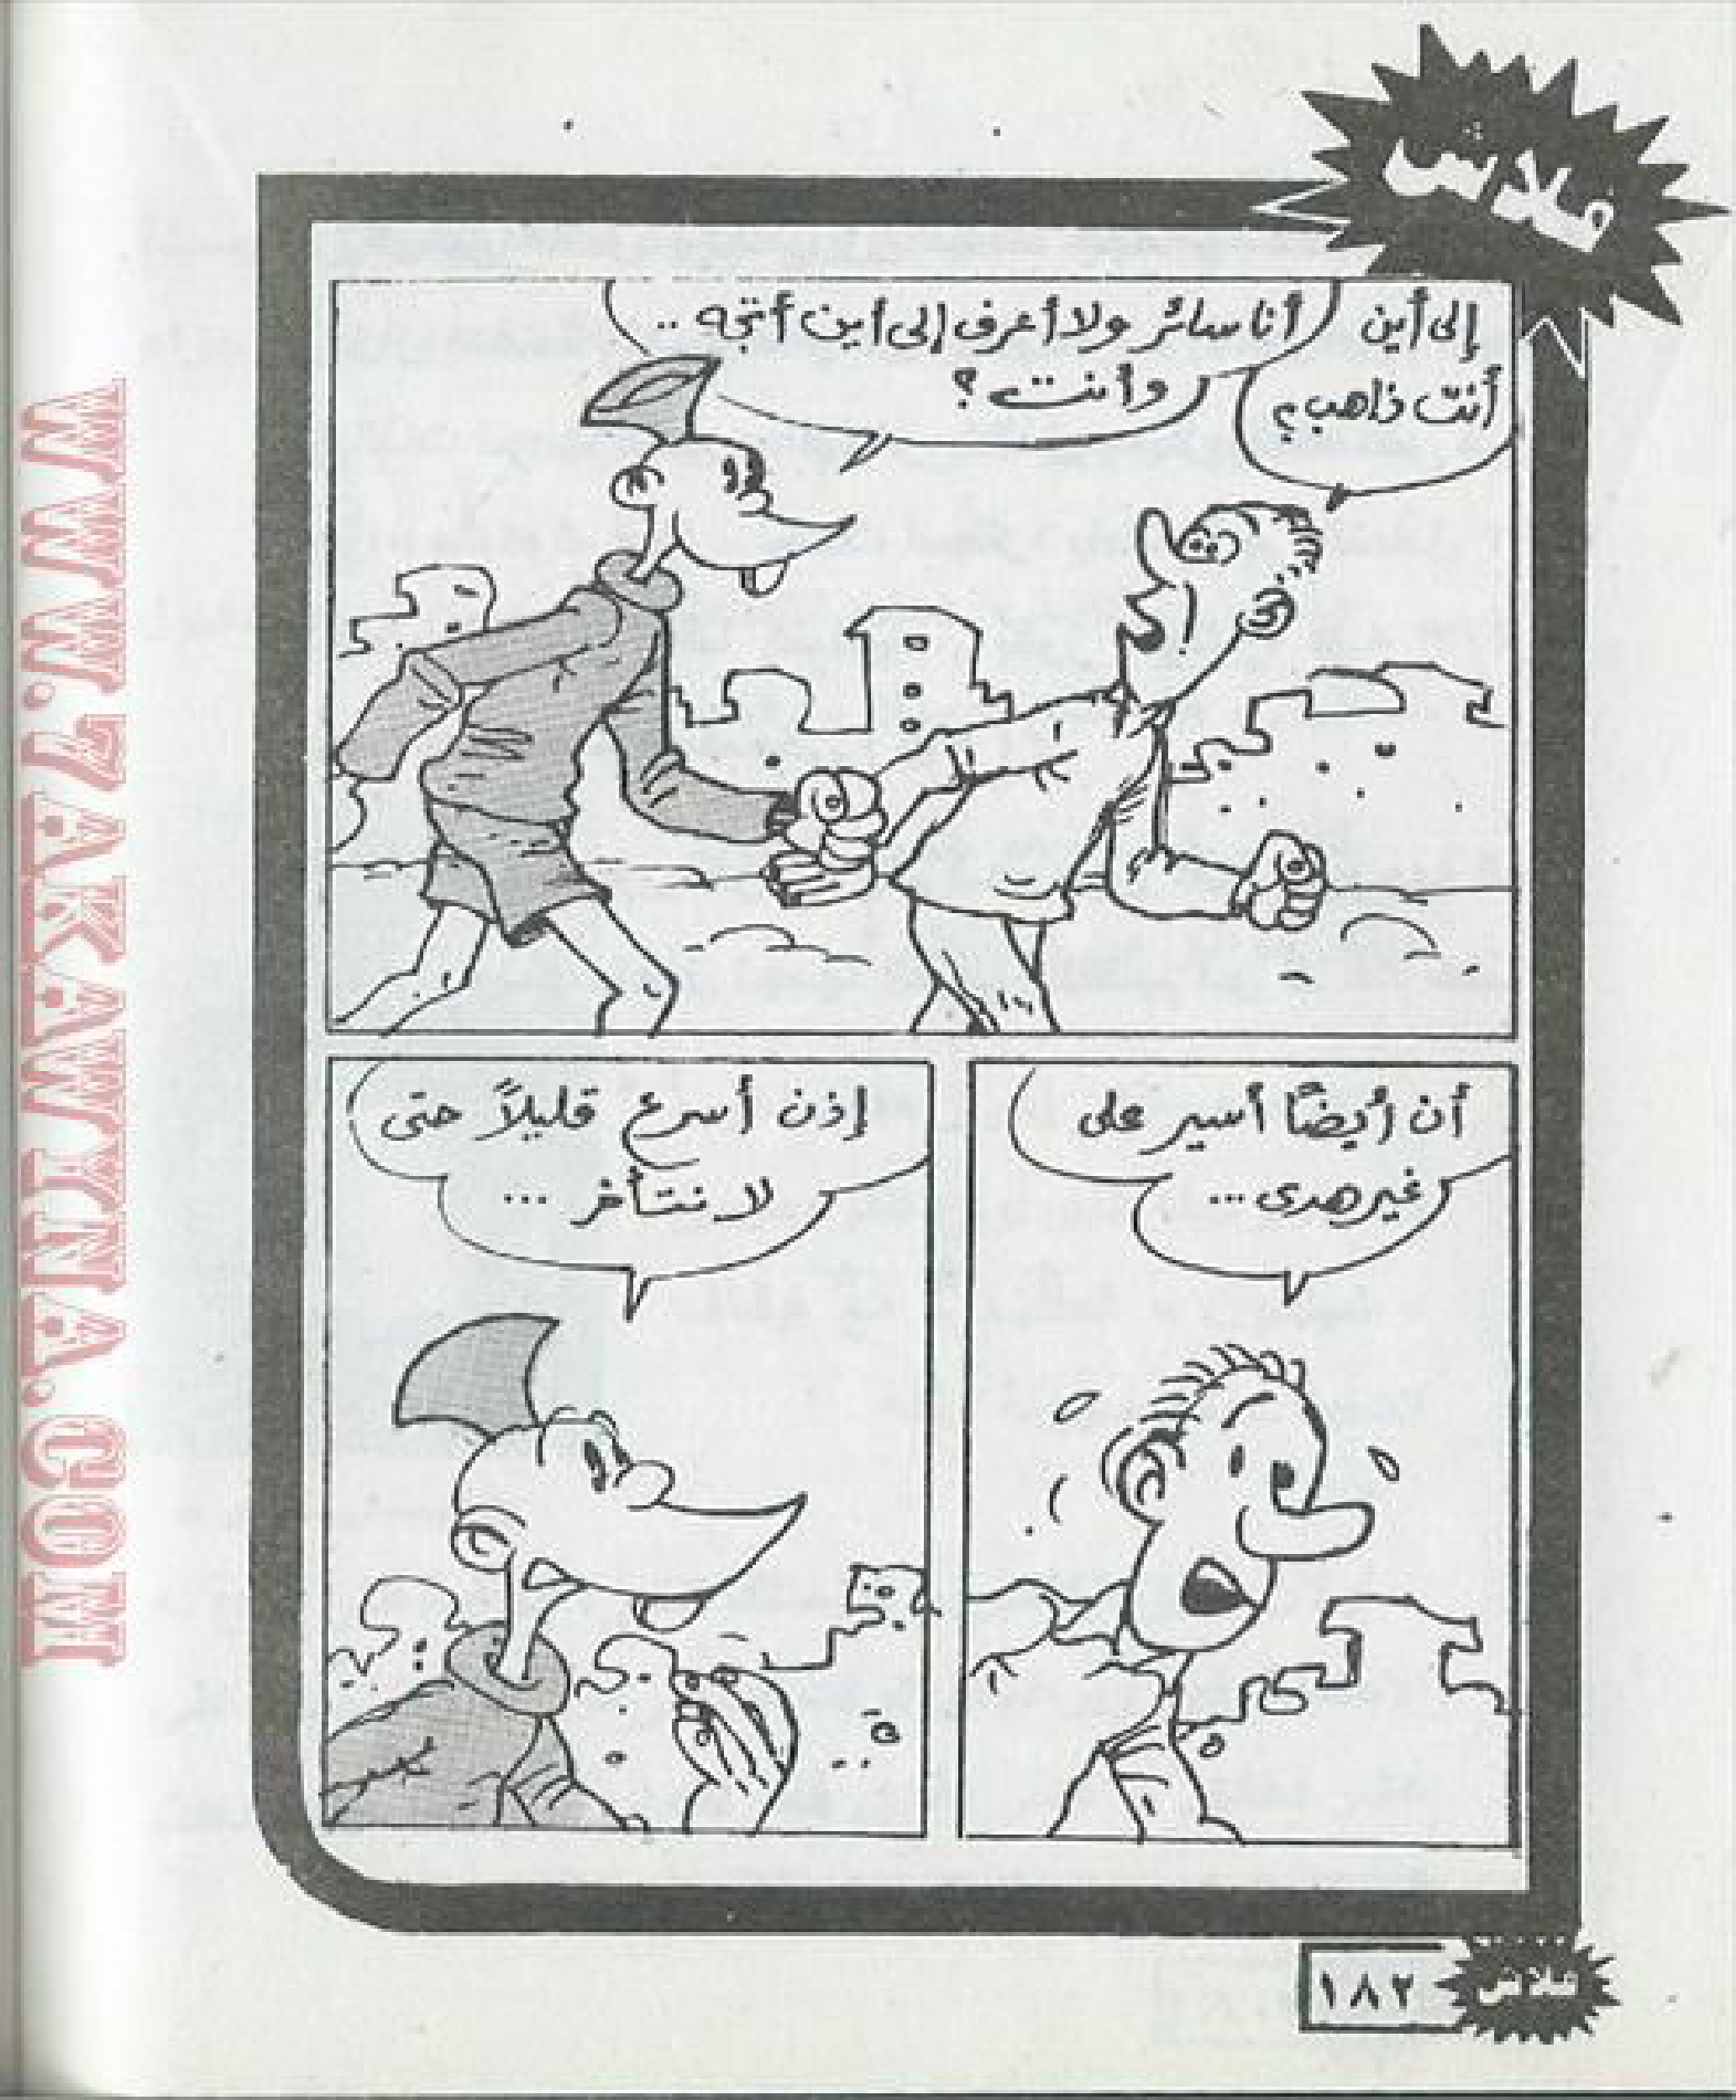 فلاش
إلى أين
أنت ذاهب؟
أنا سائر ولا أعرف إلى أين أتجه ..
وأنت؟
أن أيضًا أسير على
غير هدى ...
إذن أسرع قليلاً حتى
لا نتأخر ...
١٨٢
فلاش
WWW.7AKAWINA.COM